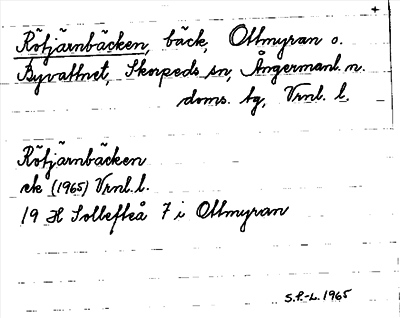 Rötjärnbäcken, bäck, Ottmyran o.
Byvattnet, Skorpeds sn, Ångermanl. n.
doms. tg, Vrnl. l.
Rötjärnbäcken
ek (1965) Vrnl. l.
19 H Sollefteå 7 i Ottmyran
S.P.-L. 1965